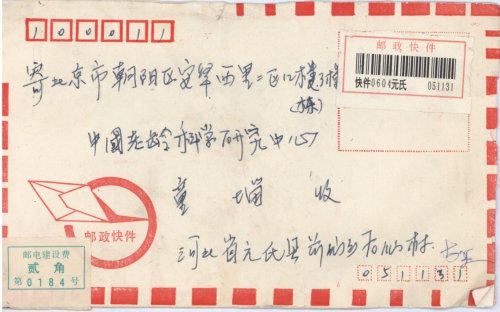 100011
邮政快件
快件0604元氏 051131
寄北京市朝阳区安华西里二区12楼3栋
(栋)
中国老龄科学研究中心
董 收
邮政快件
邮电建设费
贰角
第0184号
河北省元氏县前仙乡后仙村
051131